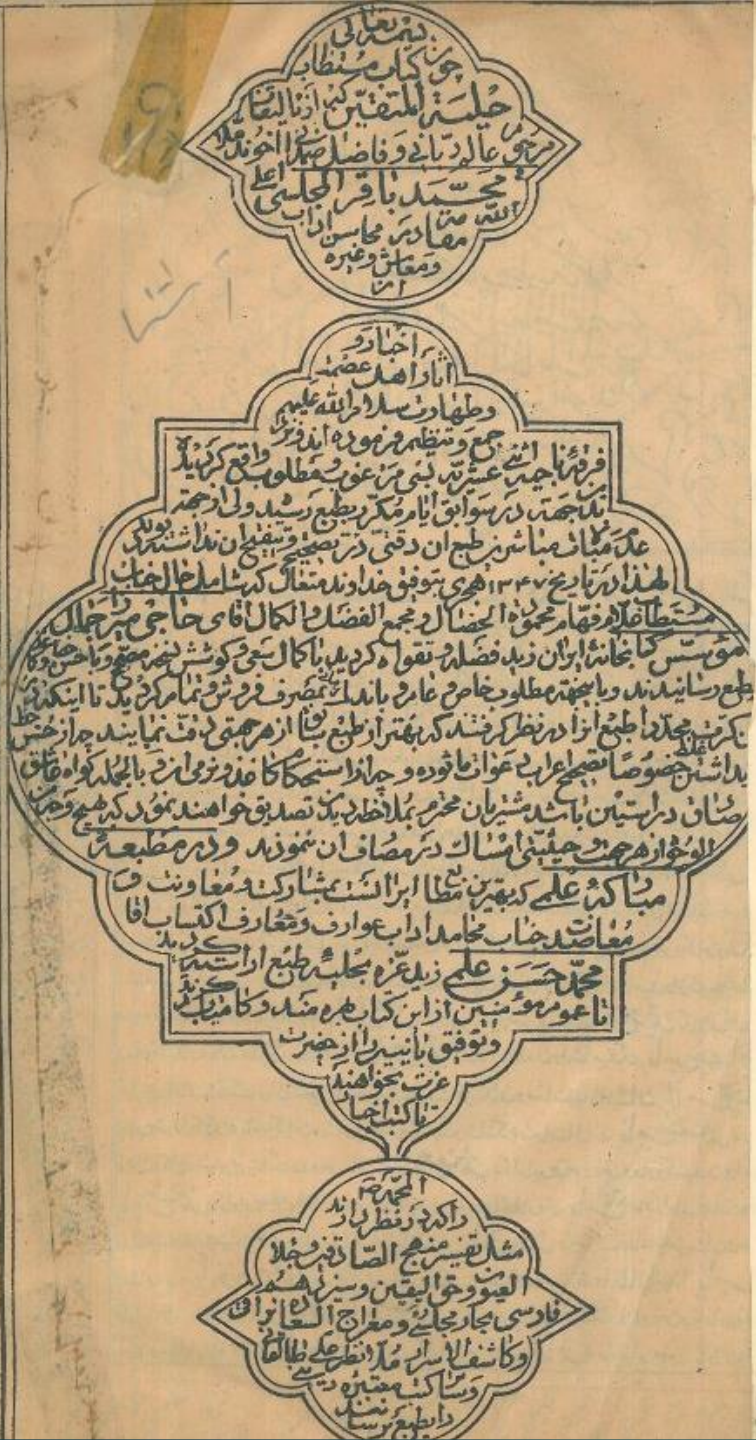 بسمه تعالی
چون کتاب مستطاب
حلیة المتقین که از تالیفات
مرحوم عالم ربانی و فاضل صمدانی اخوند ملا
محمد باقر المجلسی اعلی
الله مقامه در محاسن اداب
و معاش و غیره
از
اخبار و
اثار اهل عصمت
و طهارت سلام الله علیهم
جمع و تنظیم فرموده اند و نزد
فرقه ناجیه اثنی عشریه بسی مرغوب و مطلوب واقع گردیده
بدینجهة در سوابق ایام مکرر بطبع رسید ولی از جهة
عدم مبالات مباشرین طبع ان دقتی در تصحیح و تنقیح ان نداشته بودند
لهذا در تاریخ ۱۳۴۷ هجری بتوفیق خداوند متعال که شامل حال جناب
مستطاب فهام محموده الخصال و مجمع الفضل و الکمال اقای حاجی میرزا جمال
مؤسس کتابخانهٔ ایران زید فضله و تقواه گردید با کمال سعی و کوشش نسخه مصحح و با خس
بطبع رسانیدند و باینجهة مطلوب خاص و عام و باندک بمصرف فروش و تمام گردید تا اینکه در
کرت مجدد طبع انرا در نظر گرفتند که بهتر از طبع از هر جهتی دقت نمایند چه از حسن خط
نداشتن غلط خصوصا تصحیح اعراب دعوات ماثوره و چه از استحکام کاغذ و نومی امر و بالجمله گواه عاشق
صادق در استین باشد مشتریان محترم بملاحظه دیدن تصدیق خواهند نمود که هیچ وجه من
الوجوه از هر جهت و حیثیتی امساک در مصارف ان ننموذند و در مطبعهٔ
مبارکهٔ علمی که بهترین مطابع ایرانست بمشارکت و معاونت و
معاضدت جناب محامد اداب عوارف و معارف اکتساب اقا
محمد حسن علمی زید عزه بحلیهٔ طبع اراسته گردید
تا عموم مؤمنین از این کتاب بهره مند و کامیاب گردند
و توفیق تأیید را از حضرت
عزت بخواهند
تا کتب اخبار
را که در نظر دارند
مثل تفسیر منهج الصادقین و جلاء
العیون و حق الیقین و سیزدهم
فارسی بحار مجلسی و معراج السعادة نراقی
و کاشف الاسرار ملا نظر علی طالقانی
و سایر کتب معتبره دینی
را بطبع برسانند